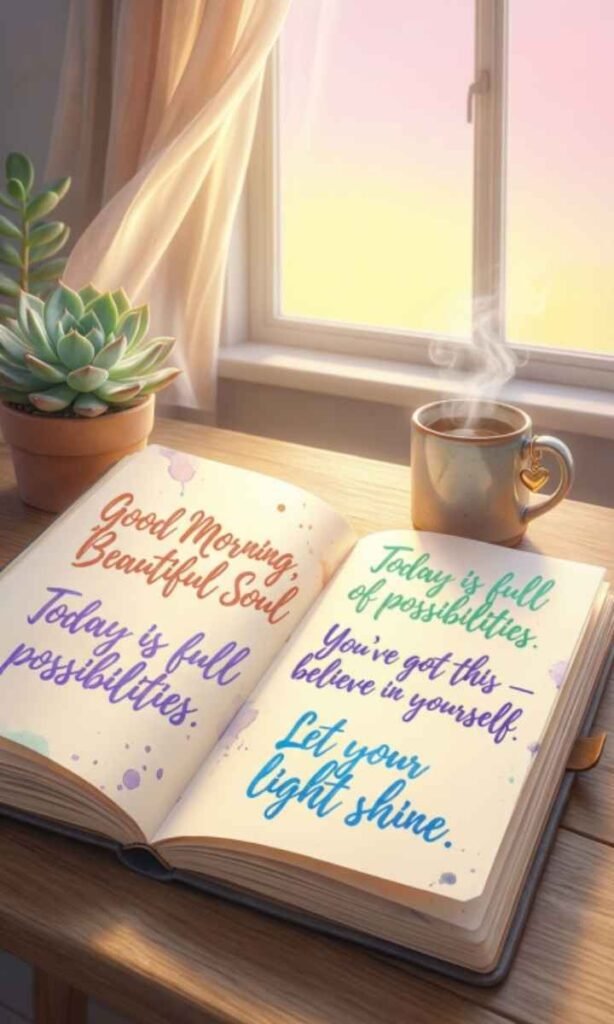 Good Morning,
Beautiful Soul
Today is full
possibilities.
Today is full
of possibilities.
You've got this —
believe in yourself.
Let your
light shine.